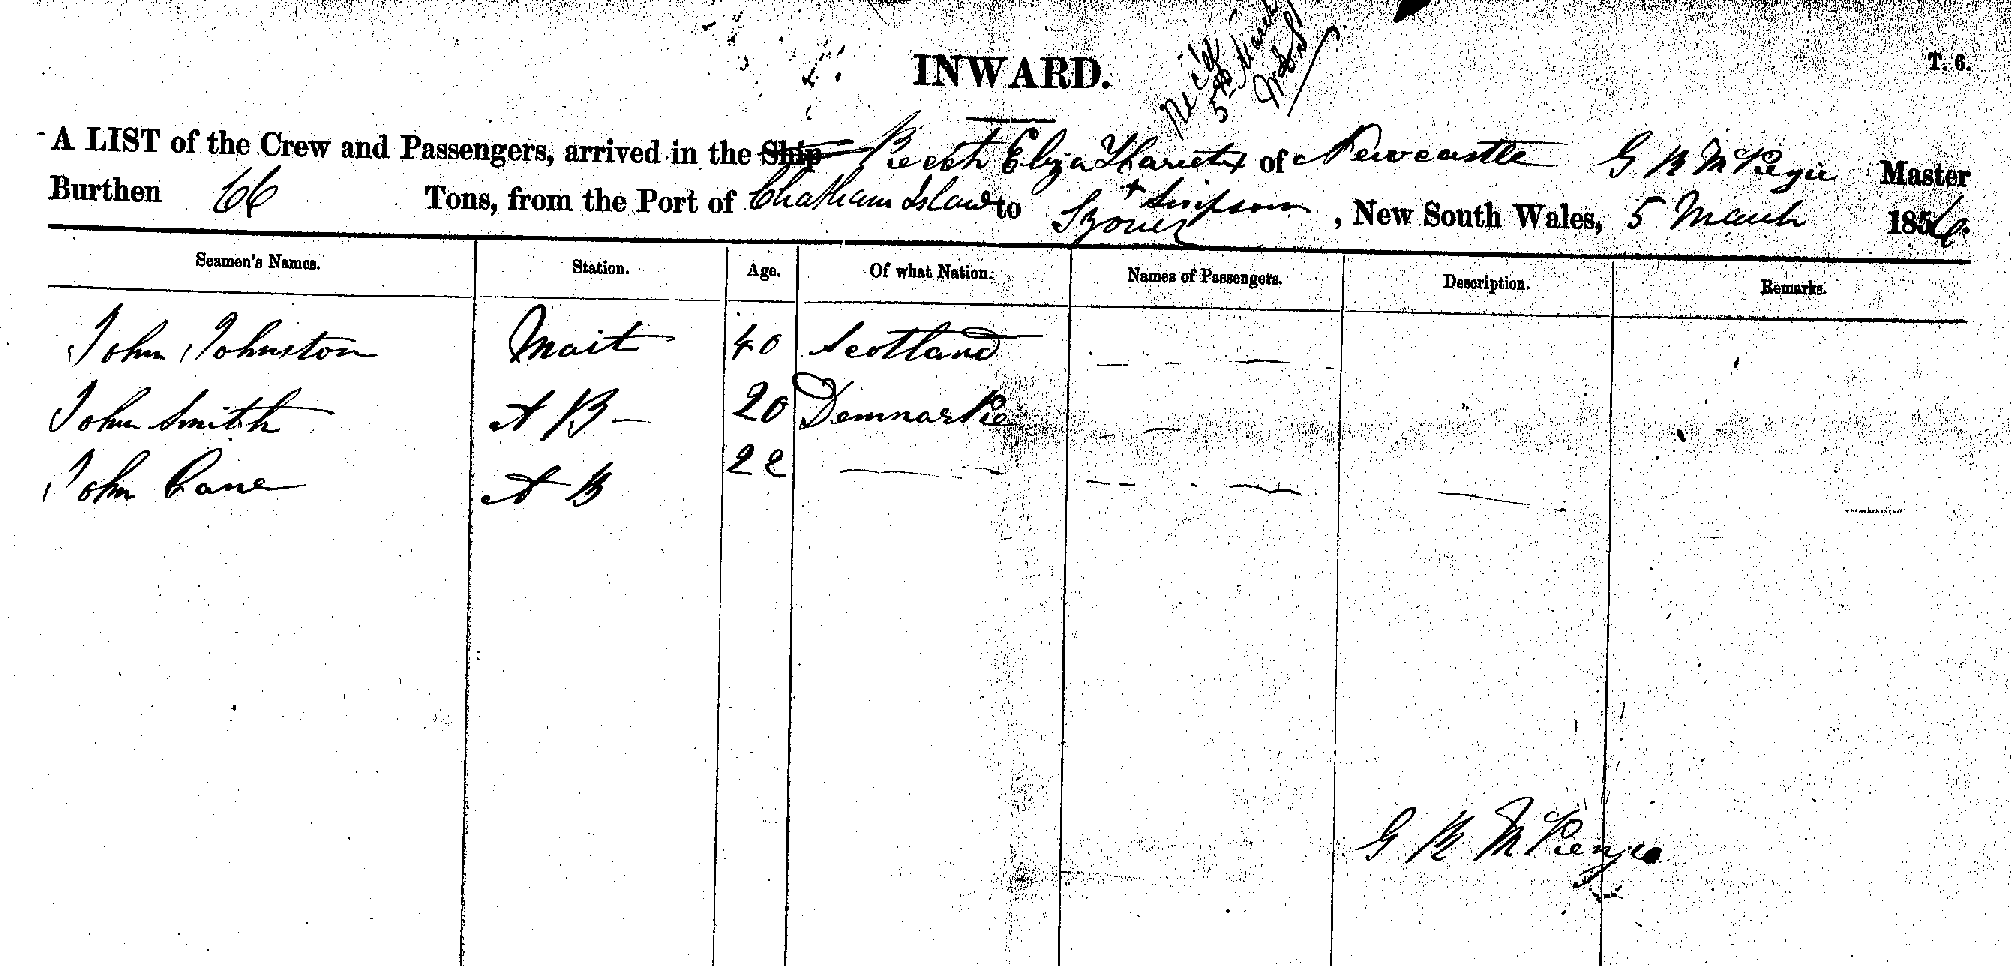 INWARD.
T. 6.
5th March
A LIST of the Crew and Passengers, arrived in the Ship Ketch Eliza Hariet + of Newcastle G R McKenzie Master
+ Simpson
Burthen 66 Tons, from the Port of Chatham Island to Sydney, New South Wales, 5 March 1856.
Seamen's Names. Station. Age. Of what Nation. Names of Passengers. Description. Remarks.
John Johnston Mait 40 Scotland
John Smith A B 20 Denmarke
John Cane A B 22
G R McKenzie